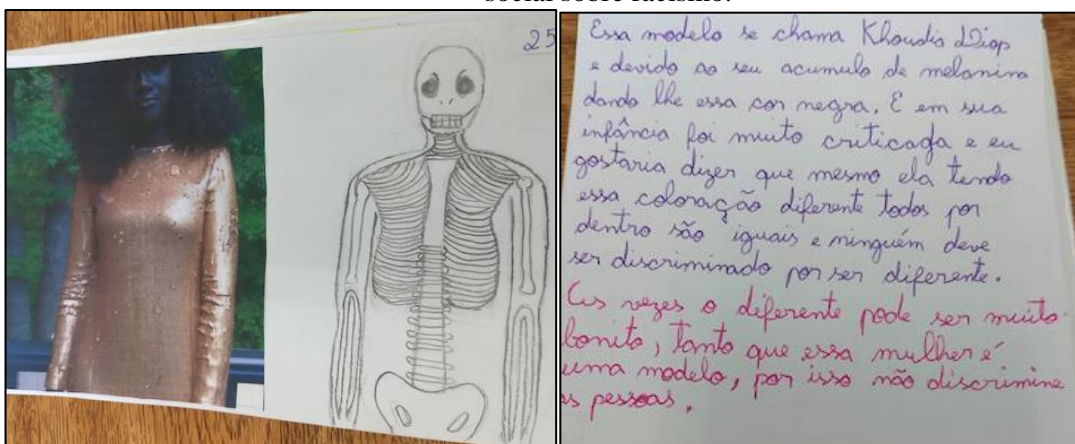 social sobre racismo.
25
Essa modelo se chama Khoudia Diop
e devido ao seu acumulo de melanina
dando lhe essa cor negra. E em sua
infância foi muito criticada e eu
gostaria dizer que mesmo ela tendo
essa coloração diferente todos por
dentro são iguais e ninguém deve
ser discriminado por ser diferente.
As vezes o diferente pode ser muito
bonito, tanto que essa mulher é
uma modelo, por isso não discrimine
as pessoas.